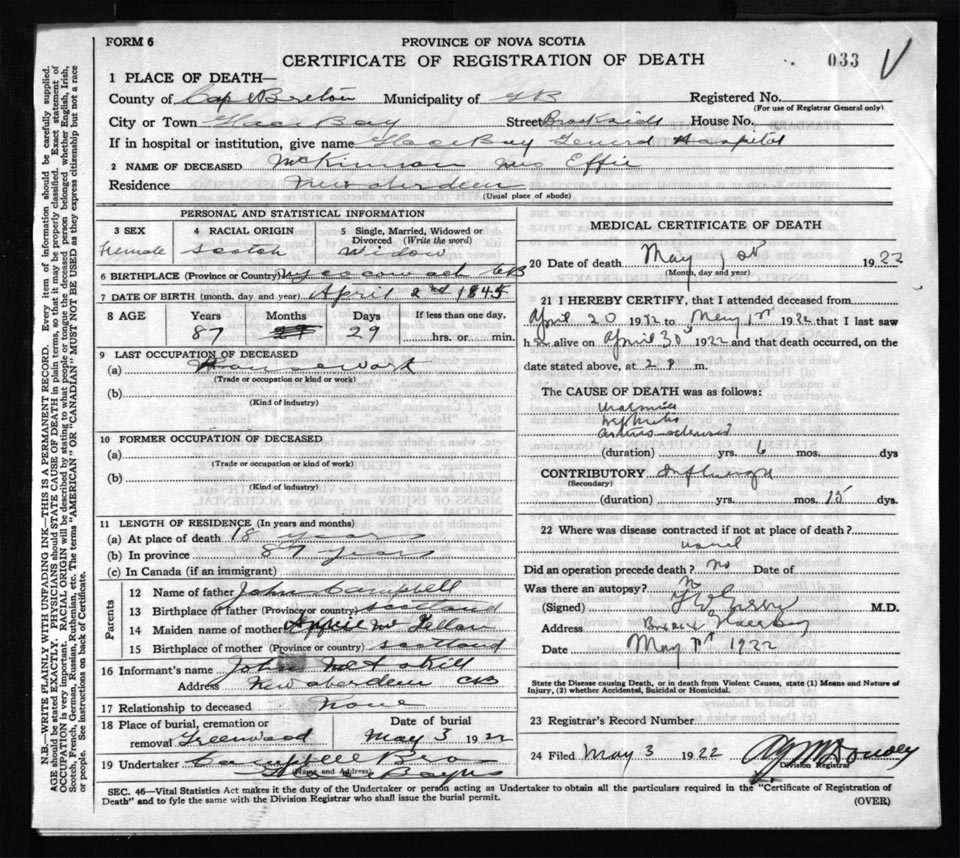 FORM 6
PROVINCE OF NOVA SCOTIA
CERTIFICATE OF REGISTRATION OF DEATH
033 V
1 PLACE OF DEATH—
County of Cape Breton Municipality of Registered No.
(For use of Registrar General only)
City or Town Glace Bay Street Brookside House No.
If in hospital or institution, give name Glace Bay General Hospital
2 NAME OF DECEASED McKinnon Mrs Effie
Residence New aberdeen
(Usual place of abode)
PERSONAL AND STATISTICAL INFORMATION
3 SEX
Female
4 RACIAL ORIGIN
Scotch
5 Single, Married, Widowed or Divorced (Write the word)
Widow
6 BIRTHPLACE (Province or Country) CB
7 DATE OF BIRTH (month, day and year) April 2nd 1845
8 AGE Years Months Days If less than one day.
87 29 hrs. or min.
9 LAST OCCUPATION OF DECEASED
(a) Housework
(Trade or occupation or kind or work)
(b)
(Kind of industry)
10 FORMER OCCUPATION OF DECEASED
(a)
(Trade or occupation or kind of work)
(b)
(Kind of industry)
11 LENGTH OF RESIDENCE (In years and months)
(a) At place of death 18 years
(b) In province 87 years
(c) In Canada (if an immigrant)
Parents
12 Name of father John Campbell
13 Birthplace of father (Province or country) Scotland
14 Maiden name of mother Mc Lellan
15 Birthplace of mother (Province or country) Scotland
16 Informant's name John McAskill
Address New aberdeen CB
17 Relationship to deceased none
18 Place of burial, cremation or removal Greenwood
Date of burial
May 3 1922
19 Undertaker Campbell Bro
(Name and Address)
MEDICAL CERTIFICATE OF DEATH
20 Date of death May 1st 1922
(Month, day and year)
21 I HEREBY CERTIFY, that I attended deceased from
April 20 1922 to May 1st 1922 that I last saw
her alive on April 30 1922 and that death occurred, on the
date stated above, at 2 P m.
The CAUSE OF DEATH was as follows:
Uraemia
Nephritis
Arterio sclerosis
(duration) yrs. 6 mos. dys
CONTRIBUTORY Influenza
(Secondary)
(duration) yrs. mos. 15 dys.
22 Where was disease contracted if not at place of death?
Did an operation precede death? No Date of
Was there an autopsy? n
(Signed) M.D.
Address
Date May 1st 1922
State the Disease causing Death, or in death from Violent Causes, state (1) Means and Nature of
Injury, (2) whether Accidental, Suicidal or Homicidal.
23 Registrar's Record Number
24 Filed May 3 1922
Division Registrar
SEC. 46—Vital Statistics Act makes it the duty of the Undertaker or person acting as Undertaker to obtain all the particulars required in the "Certificate of Registration of
Death" and to fyle the same with the Division Registrar who shall issue the burial permit.
(OVER)
N.B.—WRITE PLAINLY WITH UNFADING INK—THIS IS A PERMANENT RECORD. Every item of information should be carefully supplied.
AGE should be stated EXACTLY. PHYSICIANS should STATE CAUSE OF DEATH in plain terms, so that it may be properly classified. Exact statement of
OCCUPATION is very important. RACIAL ORIGIN will be described by stating to what people or tongue the deceased person belonged, whether English, Irish,
Scotch, French, German, Russian, Ruthenian, etc. The terms "AMERICAN" OR "CANADIAN" MUST NOT BE USED as they express citizenship but not a race
or people. See instructions on back of Certificate.